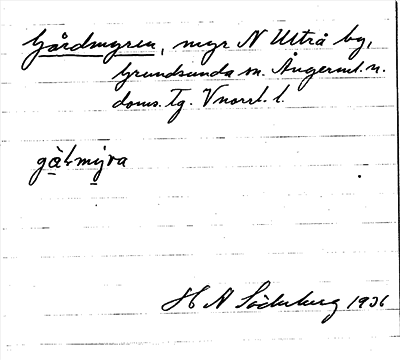 Gårdmyren, myr N Uttrå by,
Grundsunda sn. Ångerml. n.
doms. tg. Vnorrl. l.
gà̱ɫmy̱ra
H A Söderberg 1936